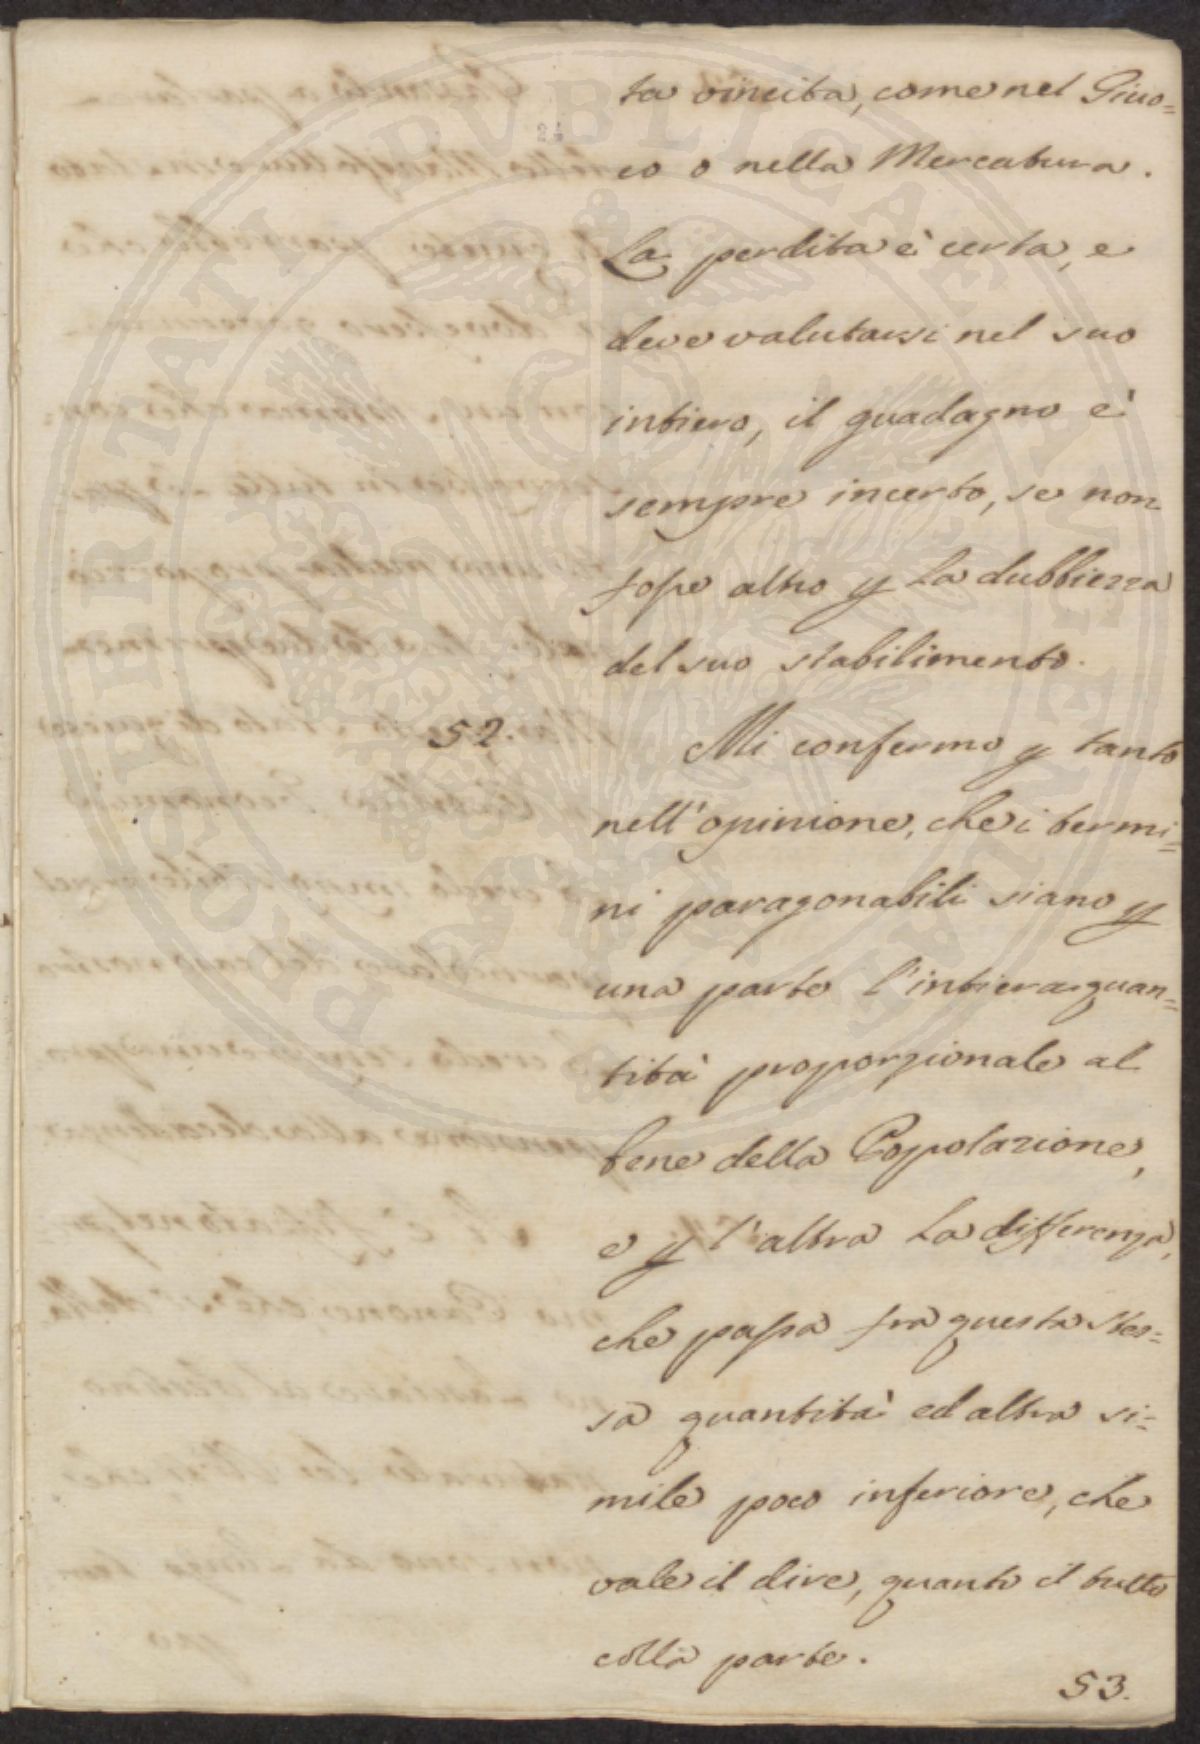 ta vincita, come nel Giuo=
co o nella Mercatura.
La perdita è certa, e
deve valutarsi nel suo
intiero, il guadagno è
sempre incerto, se non
fosse altro p la dubbiezza
del suo stabilimento.
52.
Mi confermo p tanto
nell'opinione, che i termi=
ni paragonabili siano p
una parte l'intiera quan=
tità proporzionale al
bene della Popolazione,
e p l'altra la differenza,
che passa fra questa stes=
sa quantità ed altra si=
mile poco inferiore, che
vale il dire, quanto il tutto
colla parte.
53.
PROSPERITATI PVBLICAE AVGENDAE